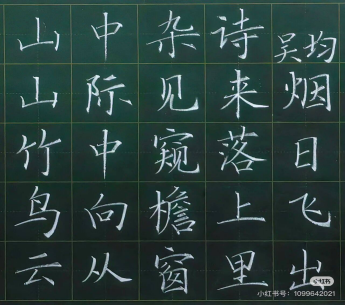 山中杂诗 吴均
山际见来烟
竹中窥落日
鸟向檐上飞
云从窗里出
小红书
小红书号：1099642021